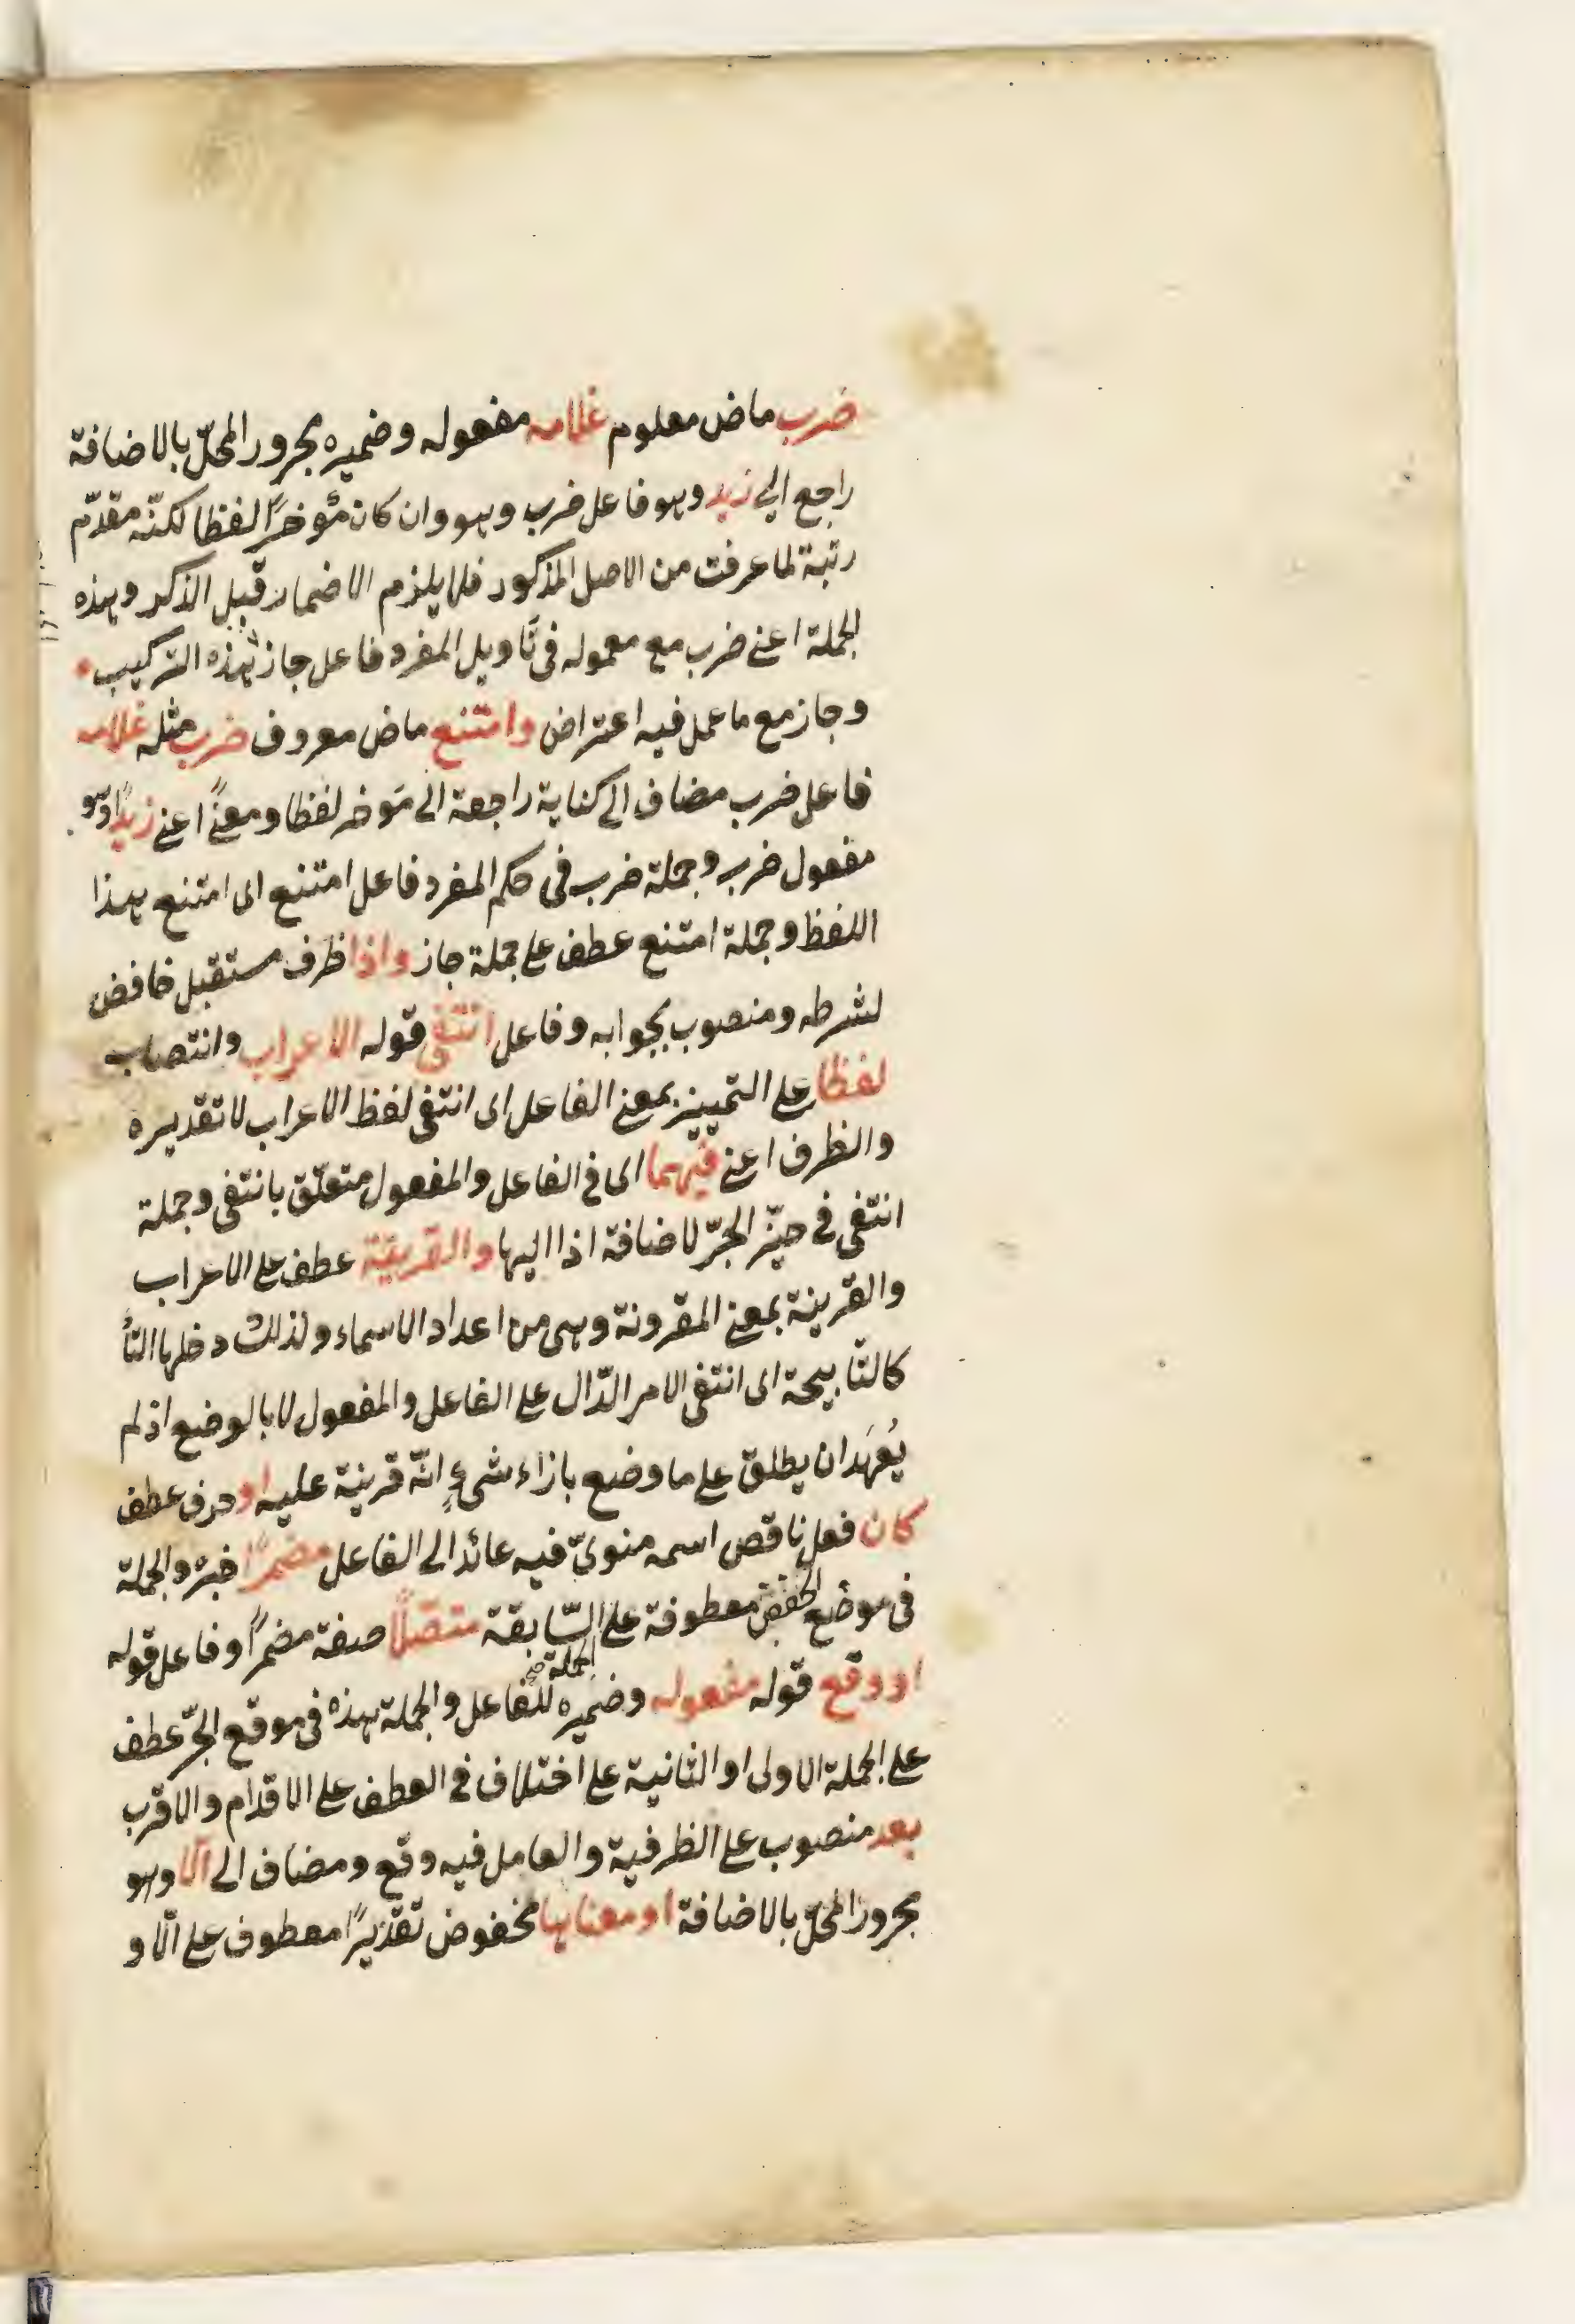 ضرب ماض معلوم غلامه مفعوله وضميره مجرور المحلّ بالاضافة
راجع الى زيد وهو فاعل ضرب وهو وان كان مؤخرًا لفظا لكنّه مقدّم
رتبة لما عرفت من الاصل المذكور فلا يلزم الاضمار قبل الذكر وهذه
الجملة اعنى ضرب مع معموله فى تأويل المفرد فاعل جاز هذه التركيب
وجاز مع ما عمل فيه اعتراض وامتنع ماض معروف ضرب مثله غلامه
فاعل ضرب مضاف الى كناية راجعة الى مؤخر لفظا ومعنًى اعنى زيدًا وهو
مفعول ضرب وجملة ضرب فى حكم المفرد فاعل امتنع اى امتنع هذا
اللفظ وجملة امتنع عطف على جملة جاز واذا ظرف مستقبل خافض
لشرطه ومنصوب بجوابه وفاعل انتفى قوله الاعراب وانتصاب
لفظا على التمييز بمعنى الفاعل اى انتفى لفظ الاعراب لا تقديره
والظرف اعنى فيهما اى فى الفاعل والمفعول متعلّق بانتفى وجملة
انتفى فى حيّز الجرّ لاضافة اذا اليها والقرينة عطف على الاعراب
والقرينة بمعنى المقرونة وهى من اعداد الاسماء ولذلك دخلها التأ
كالذّبيحة اى انتفى الامر الدّال على الفاعل والمفعول لا بالوضع اذ لم
يُعهَد ان يطلق على ما وضع بازاء شىءٍ انّه قرينة عليه او حرف عطف
كان فعل ناقص اسمه منوىّ فيه عائد الى الفاعل مضمرًا خبره والجملة
فى موضع الخفض معطوفة على الجملة السّابقة متصّلًا صفة مضمرًا وفاعل قوله
او وقع قوله مفعوله وضميره للفاعل والجملة هذه فى موقع الجرّ عطف
على الجملة الاولى او الثانية على اختلاف فى العطف على الاقدام والاقرب
بعد منصوب على الظرفية والعامل فيه وقع ومضاف الى الّا وهو
مجرور المحلّ بالاضافة او معناها مخفوض تقديرًا معطوف على الّا و